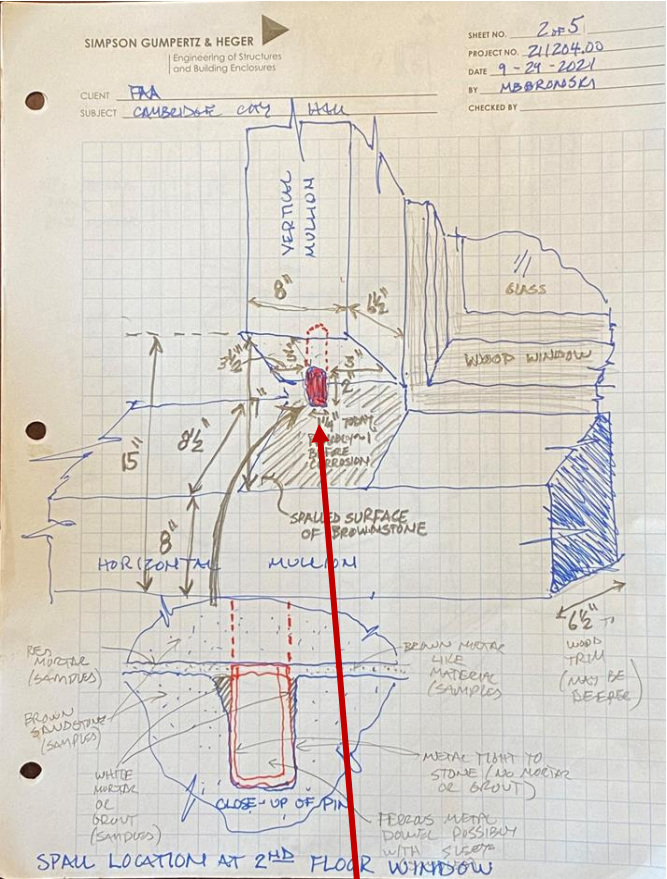 SIMPSON GUMPERTZ & HEGER
Engineering of Structures
and Building Enclosures
SHEET NO. 2 of 5
PROJECT NO. 211204.00
DATE 9-29-2021
BY MBBRONSKI
CHECKED BY
CLIENT FAA
SUBJECT CAMBRIDGE CITY HALL
VERTICAL
MULLION
8"
6½"
GLASS
WOOD WINDOW
3½"
3"
3"
2"
1"
1¼" TODAY,
BEFORE
CORROSION
15"
8½"
8"
SPALLED SURFACE
OF BROWNSTONE
HORIZONTAL MULLION
6½" TO
WOOD
TRIM
(MAY BE
DEEPER)
RED
MORTAR
(SAMPLES)
BROWN MORTAR
LIKE
MATERIAL
(SAMPLES)
BROWN
SANDSTONE
(SAMPLES)
WHITE
MORTAR
OR
GROUT
(SAMPLES)
METAL TIGHT TO
STONE (NO MORTAR
OR GROUT)
CLOSE-UP OF PIN
FERROUS METAL
DOWEL POSSIBLY
WITH
SPALL LOCATION AT 2ND FLOOR WINDOW